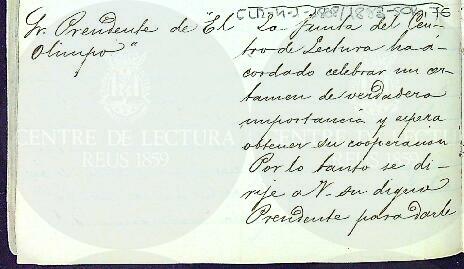 Sr. Presidente de "El
Olimpo"
La Junta del Cen-
tro de Lectura ha a-
cordado celebrar un cer-
tamen de verdadera
importancia y espera
obtener su cooperacion
Por lo tanto se di-
rije a V. su digno
Presidente para darle
CENTRE DE LECTURA
REUS 1859
CENTRE DE LECTURA
REUS 1859